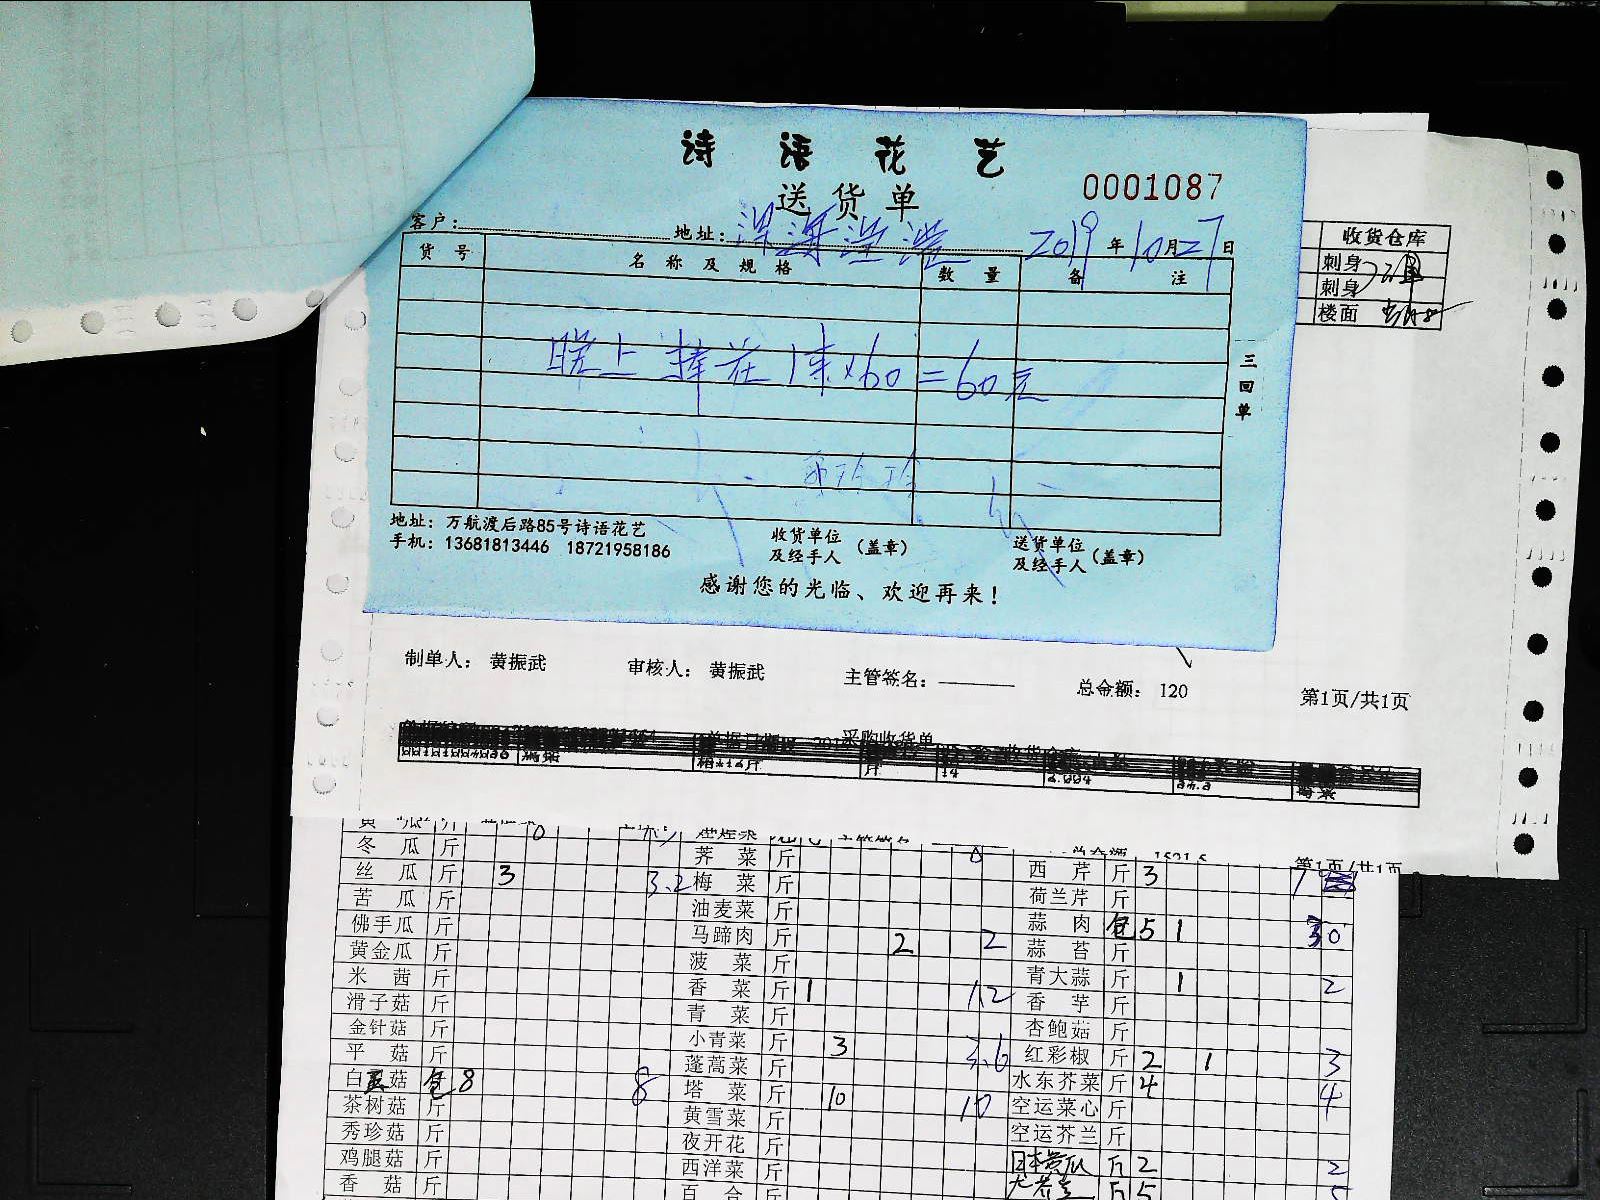 诗语花艺
送货单
0001087
客户：
地址：
2019年10月27日
货号 名称及规格 数量 备注
晚上捧花1束×60=60元
三回单
地址：万航渡后路85号诗语花艺
手机：13681813446 18721958186
收货单位及经手人（盖章）
送货单位及经手人（盖章）
感谢您的光临、欢迎再来！
收货仓库
刺身
刺身
楼面
制单人：黄振武 审核人：黄振武 主管签名： 总金额：120 第1页/共1页
采购收货单
第1页/共1页
冬瓜 斤
丝瓜 斤 3 3.2
苦瓜 斤
佛手瓜 斤
黄金瓜 斤
米茜 斤
滑子菇 斤
金针菇 斤
平菇 斤
白玉菇 包 8 8
茶树菇 斤
秀珍菇 斤
鸡腿菇 斤
香菇 斤
荠菜 斤
梅菜 斤
油麦菜 斤
马蹄肉 斤 2 2
菠菜 斤
香菜 斤 1 1.2
青菜 斤
小青菜 斤 3 3.6
蓬蒿菜 斤
塔菜 斤 10 10
黄雪菜 斤
夜开花 斤
西洋菜 斤
百合 斤
西芹 斤 3
荷兰芹 斤
蒜肉 包 5 1 30
蒜苔 斤
青大蒜 斤 1 2
香芋 斤
杏鲍菇 斤
红彩椒 斤 2 1 3
水东芥菜 斤 4 4
空运菜心 斤
空运芥兰 斤
日本黄瓜 斤 2 2